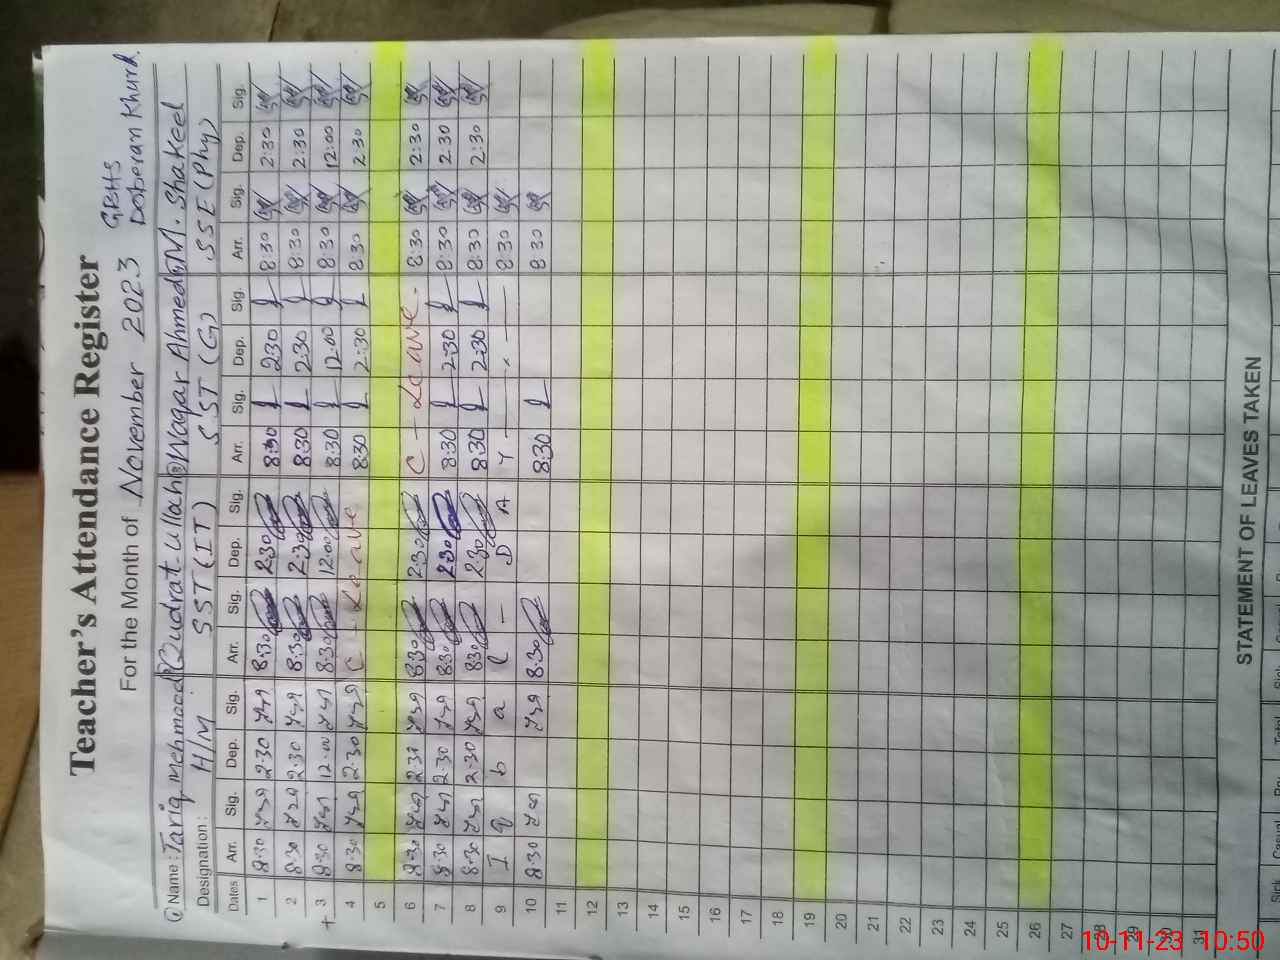 Teacher's Attendance Register
For the Month of November 2023 GBHS
Doberan Khurd.
① Name: Tariq mehmood ② Qudrat ullah ③ Waqar Ahmed ④ M. Shakeel
Designation: H/M SST (IT) SST (G) SSE (Phy)
Dates Arr. Sig. Dep. Sig. Arr. Sig. Dep. Sig. Arr. Sig. Dep. Sig. Arr. Sig. Dep. Sig.
1 8:30 2:30 8:30 2:30 8:30 2:30 8:30 2:30
2 8:30 2:30 8:30 2:30 8:30 2:30 8:30 2:30
+ 3 8:30 12:00 8:30 12:00 8:30 12:00 8:30 12:00
4 8:30 2:30 C - Leave 8:30 2:30 8:30 2:30
5
6 8:30 2:30 8:30 2:30 C - Leave. 8:30 2:30
7 8:30 2:30 8:30 2:30 8:30 2:30 8:30 2:30
8 8:30 2:30 8:30 2:30 8:30 2:30 8:30 2:30
9 I q b a l - D A Y 8:30
10 8:30 8:30 8:30 8:30
11
12
13
14
15
16
17
18
19
20
21
22
23
24
25
26
27
28
29
30
31
STATEMENT OF LEAVES TAKEN
10-11-23 10:50